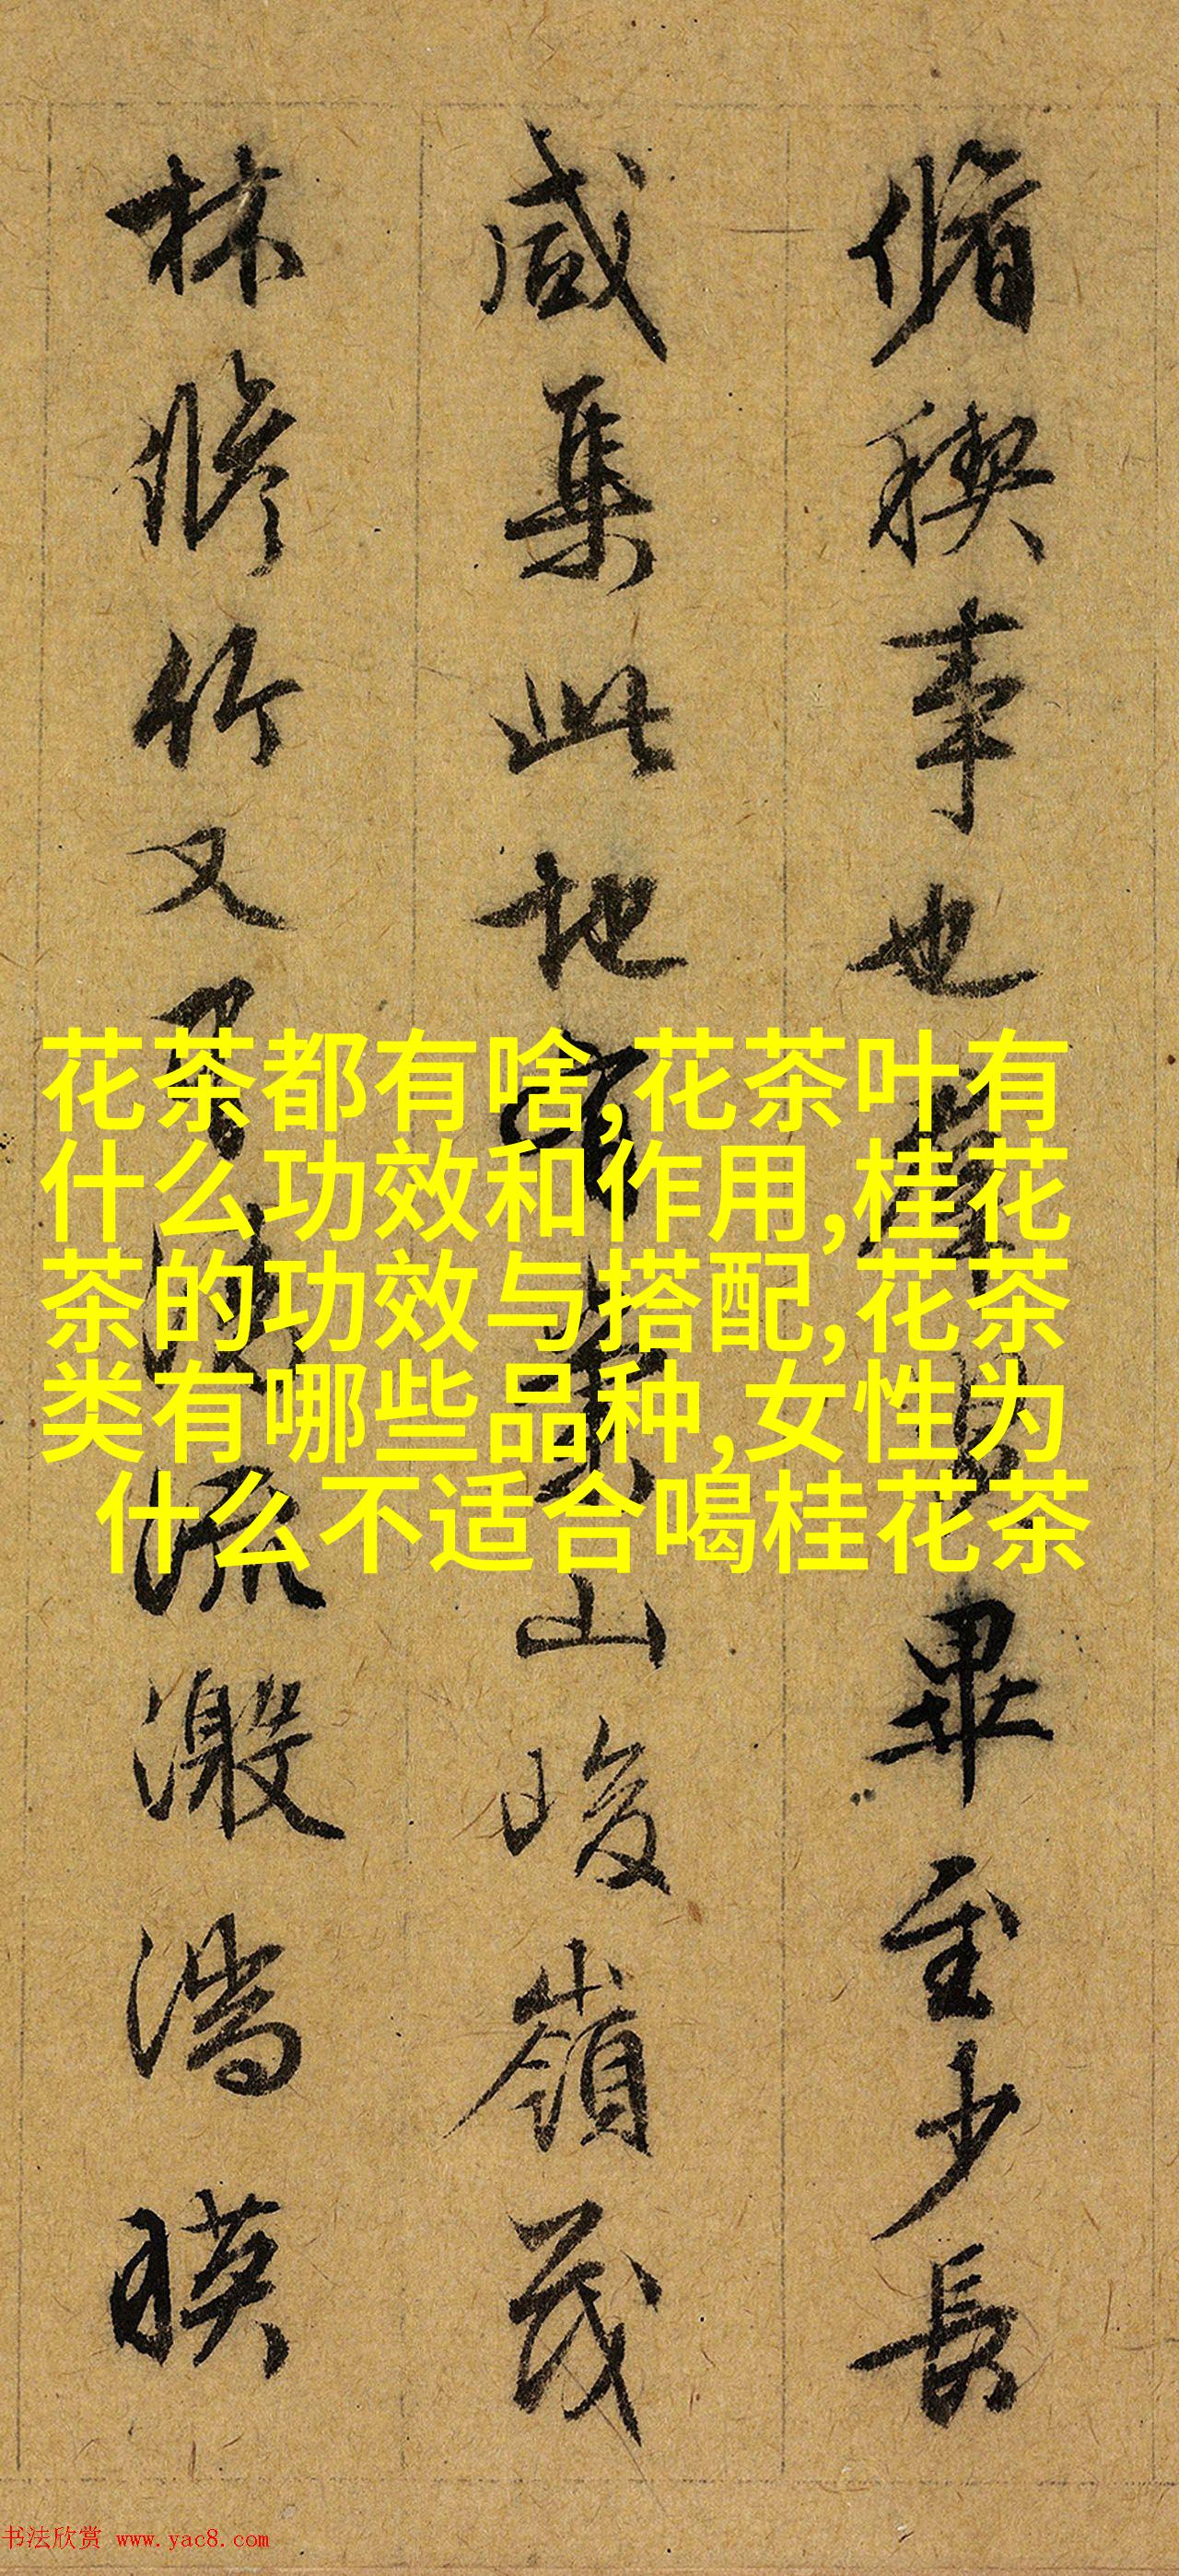 脩稧事也羣賢畢至少長
咸集此地有崇山峻嶺茂
林脩竹又有清流激湍暎
花茶都有啥,花茶叶有
什么功效和作用,桂花
茶的功效与搭配,花茶
类有哪些品种,女性为
什么不适合喝桂花茶
书法欣赏 www.yac8.com